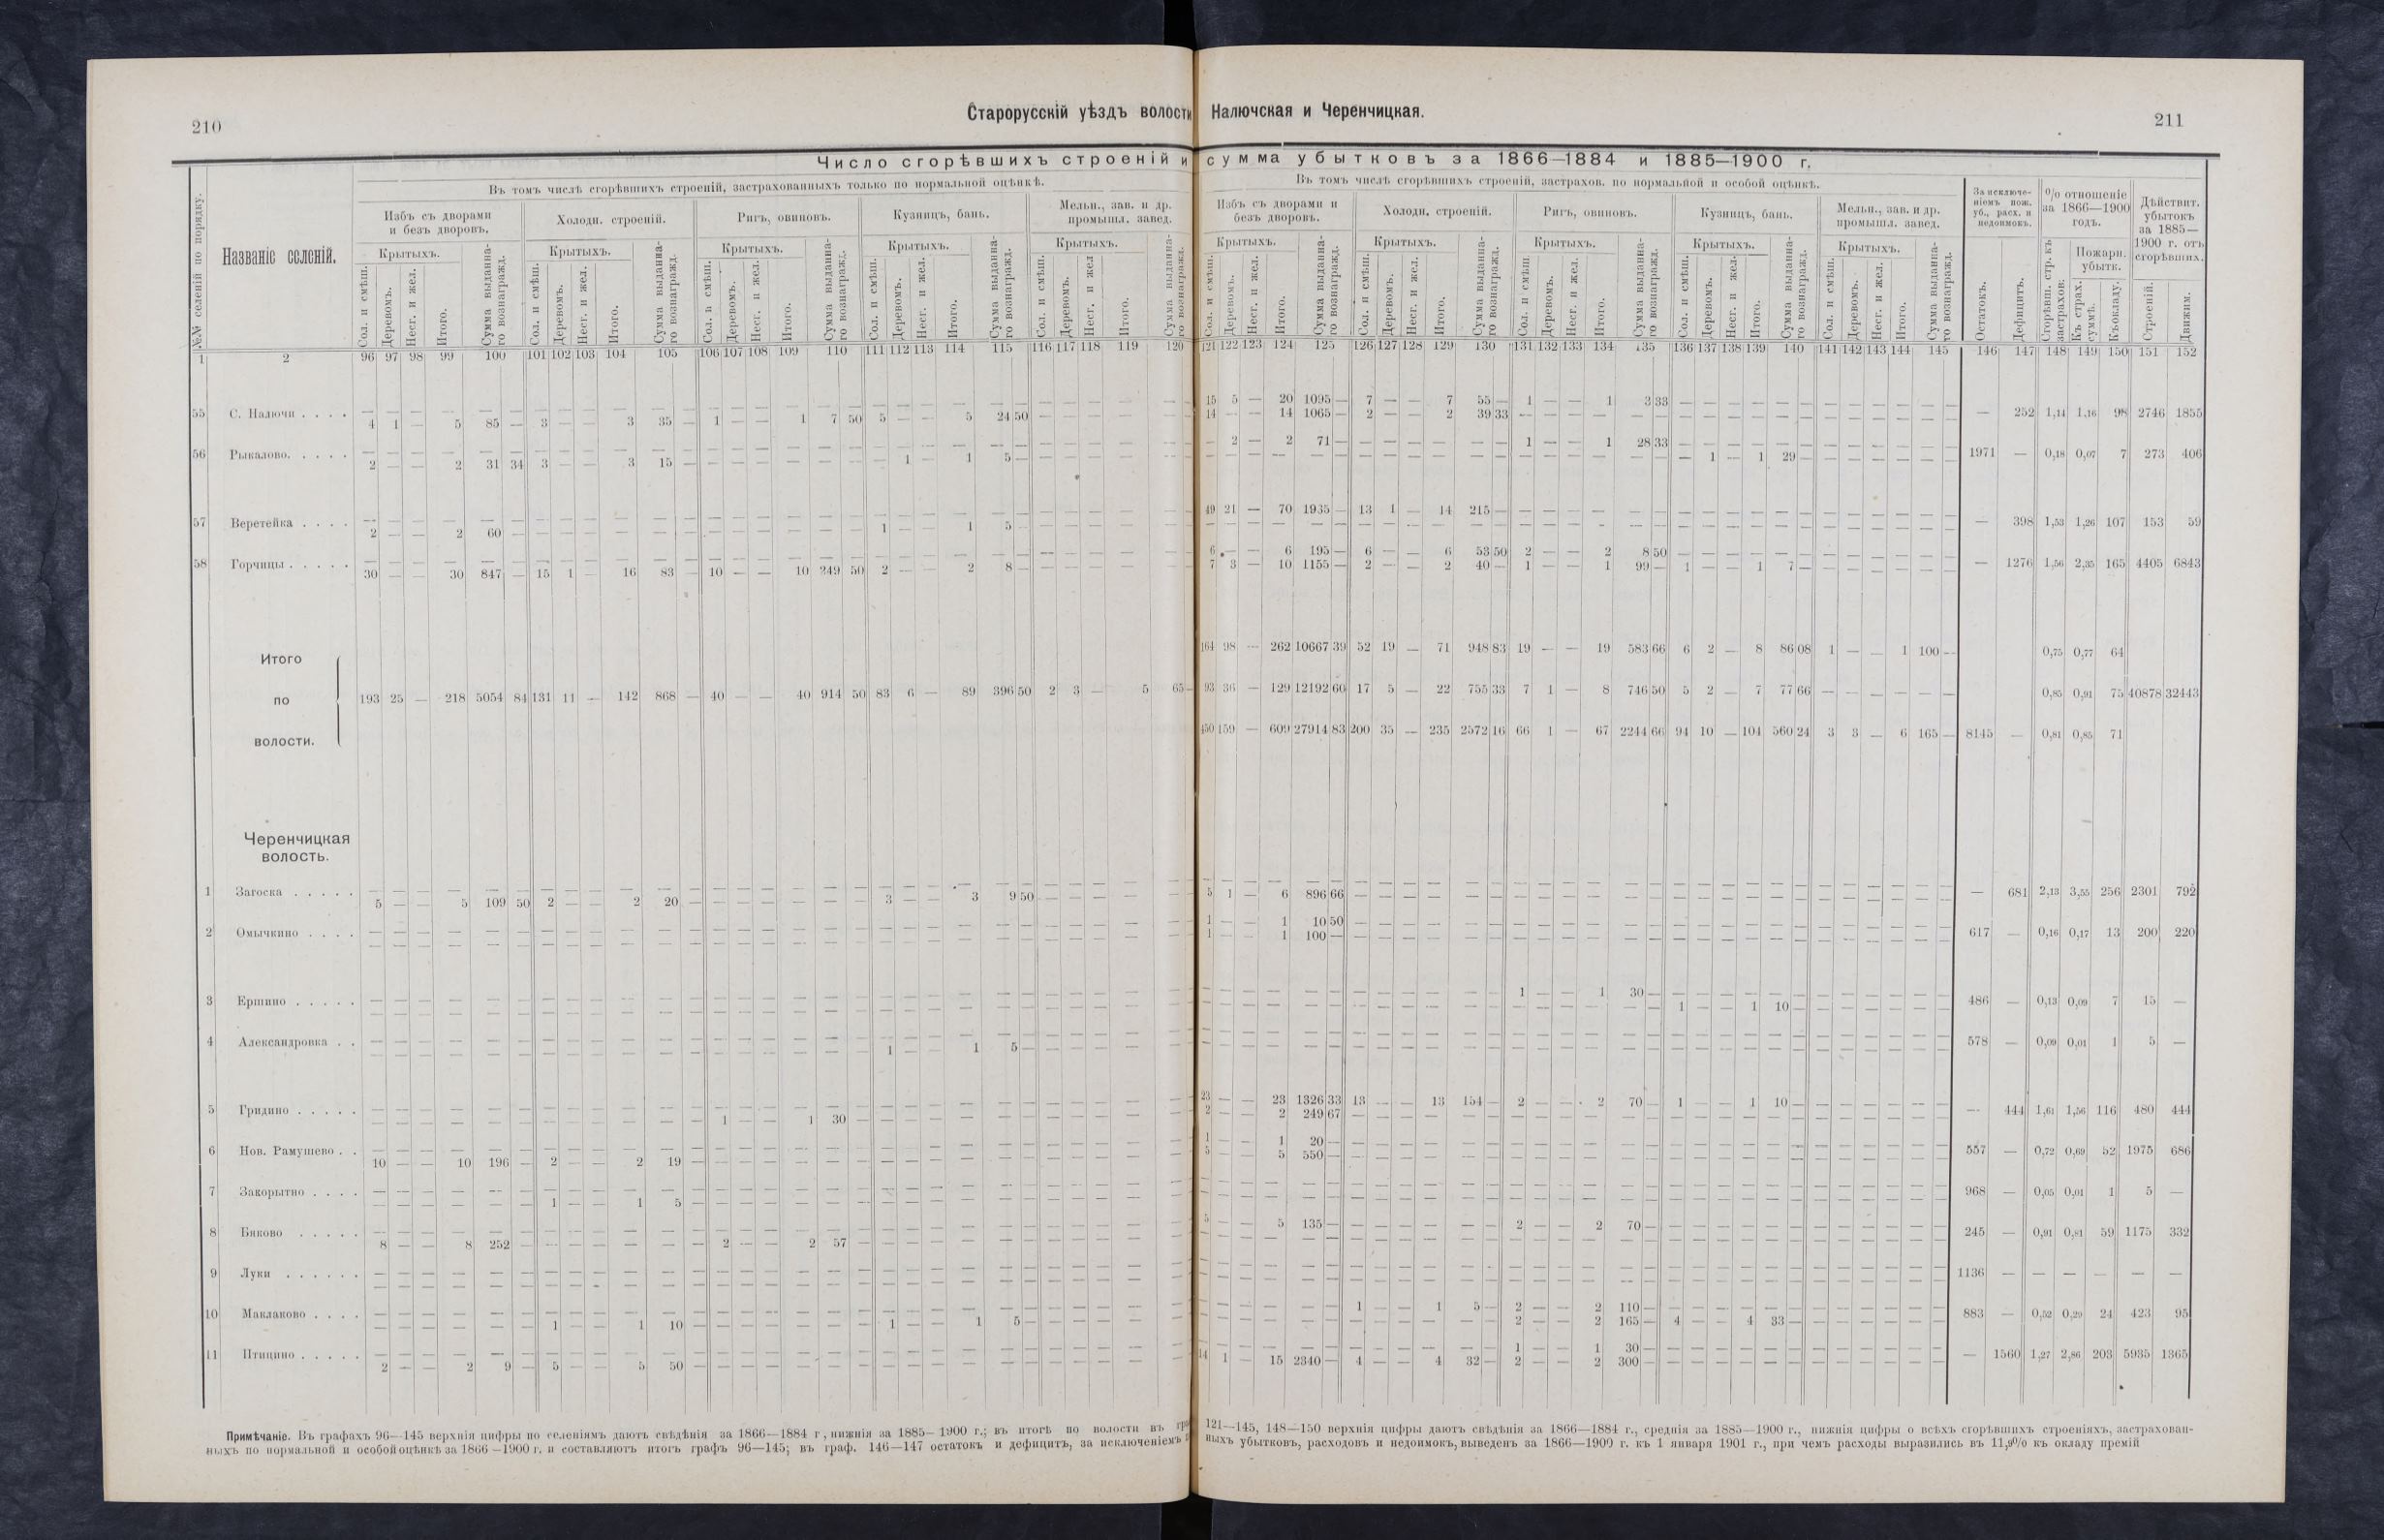 210
Старорусскій уѣздъ волости Налючская и Черенчицкая.
211
Число сгорѣвшихъ строеній и сумма убытковъ за 1866—1884 и 1885—1900 г.
№№ селеній по порядку.
Названіе селеній.
Въ томъ числѣ сгорѣвшихъ строеній, застрахованныхъ только по нормальной оцѣнкѣ.
Въ томъ числѣ сгорѣвшихъ строеній, застрахов. по нормальной и особой оцѣнкѣ.
Избъ съ дворами и безъ дворовъ.
Холодн. строеній.
Ригъ, овиновъ.
Кузницъ, бань.
Мельн., зав. и др. промышл. завед.
Избъ съ дворами и безъ дворовъ.
Холодн. строеній.
Ригъ, овиновъ.
Кузницъ, бань.
Мельн., зав. и др. промышл. завед.
За исключеніемъ пож. уб., расх. и недоимокъ.
% отношеніе за 1866—1900 годъ.
Дѣйствит. убытокъ за 1885—1900 г. отъ сгорѣвшихъ.
Крытыхъ.
Сол. и смѣш.
Деревомъ.
Несг. и жел.
Итого.
Сумма выданнаго вознагражд.
Остатокъ.
Дефицитъ.
Сгорѣвш. стр. къ застрахов.
Пожарн. убытк.
Къ страх. суммѣ.
Къ окладу.
Строеній.
Движим.
1 2 96 97 98 99 100 101 102 103 104 105 106 107 108 109 110 111 112 113 114 115 116 117 118 119 120 121 122 123 124 125 126 127 128 129 130 131 132 133 134 135 136 137 138 139 140 141 142 143 144 145 146 147 148 149 150 151 152
15 5 — 20 1095 — 7 — — 7 55 — 1 — — 1 3 33
55 С. Налючи . . . . 14 — — 14 1065 — 2 — — 2 39 33 — 252 1,14 1,16 98 2746 1855
4 1 — 5 85 — 3 — — 3 35 — 1 — — 1 7 50 5 — — 5 24 50
— 2 — 2 71 — 1 — — 1 28 33
56 Рыкалово. . . . . 1971 — 0,18 0,07 7 273 406
2 — — 2 31 34 3 — — 3 15 — — 1 — 1 5 — — 1 — 1 29 —
49 21 — 70 1935 — 13 1 — 14 215 —
57 Веретейка . . . . — 398 1,53 1,26 107 153 59
2 — — 2 60 — 1 — — 1 5 —
6 — — 6 195 — 6 — — 6 53 50 2 — — 2 8 50
58 Горчицы . . . . . — 1276 1,56 2,35 165 4405 6843
30 — — 30 847 — 15 1 — 16 83 — 10 — — 10 249 50 2 — — 2 8 — 7 3 — 10 1155 — 2 — — 2 40 — 1 — — 1 99 — 1 — — 1 7 —
Итого 164 98 — 262 10667 39 52 19 — 71 948 83 19 — — 19 583 66 6 2 — 8 86 08 1 — — 1 100 — 0,75 0,77 64
по 193 25 — 218 5054 84 131 11 — 142 868 — 40 — — 40 914 50 83 6 — 89 396 50 2 3 — 5 65 — 93 36 — 129 12192 60 17 5 — 22 755 33 7 1 — 8 746 50 5 2 — 7 77 66 — — — — — 0,85 0,91 75 40878 32443
волости. 450 159 — 609 27914 83 200 35 — 235 2572 16 66 1 — 67 2244 66 94 10 — 104 560 24 3 3 — 6 165 — 8145 — 0,81 0,85 71
Черенчицкая
волость.
1 Загоска . . . . . — 681 2,13 3,55 256 2301 792
5 — — 5 109 50 2 — — 2 20 — 3 — — 3 9 50 5 1 — 6 896 66
1 — — 1 10 50
2 Омычкино . . . . 617 — 0,16 0,17 13 200 220
1 — — 1 100 —
3 Ершино . . . . . 1 — — 1 30 — 486 — 0,13 0,09 7 15 —
1 — — 1 10 —
4 Александровка . . 578 — 0,09 0,01 1 5 —
1 — — 1 5 —
23 — — 23 1326 33 13 — — 13 154 — 2 — — 2 70 — 1 — — 1 10 —
5 Гридино . . . . . — 444 1,61 1,56 116 480 444
1 — — 1 30 — 2 — — 2 249 67
1 — — 1 20 —
6 Нов. Рамушево . . 557 — 0,72 0,69 52 1975 686
10 — — 10 196 — 2 — — 2 19 — 5 — — 5 550 —
7 Закорытно . . . . 968 — 0,05 0,01 1 5 —
1 — — 1 5 —
8 Бяково . . . . . 5 — — 5 135 — 2 — — 2 70 — 245 — 0,91 0,81 59 1175 332
8 — — 8 252 — 2 — — 2 57 —
9 Луки . . . . . . 1136 — — — — — —
10 Маклаково . . . . 1 — — 1 5 — 2 — — 2 110 — 883 — 0,52 0,29 24 423 95
1 — — 1 10 — 1 — — 1 5 — 2 — — 2 165 — 4 — — 4 33 —
11 Птицино . . . . . 1 — — 1 30 — — 1560 1,27 2,86 203 5935 1365
2 — — 2 9 — 5 — — 5 50 — 14 1 — 15 2340 — 4 — — 4 32 — 2 — — 2 300 —
Примѣчаніе. Въ графахъ 96—145 верхнія цифры по селеніямъ даютъ свѣдѣнія за 1866—1884 г, нижнія за 1885—1900 г.; въ итогѣ по волости въ 121—145, 148—150 верхнія цифры даютъ свѣдѣнія за 1866—1884 г., среднія за 1885—1900 г., нижнія цифры о всѣхъ сгорѣвшихъ строеніяхъ, застрахован-
ныхъ по нормальной и особой оцѣнкѣ за 1866—1900 г. и составляютъ итогъ графъ 96—145; въ граф. 146—147 остатокъ и дефицитъ, за исключеніемъ убытковъ, расходовъ и недоимокъ, выведенъ за 1866—1900 г. къ 1 января 1901 г., при чемъ расходы выразились въ 11,9% къ окладу премій